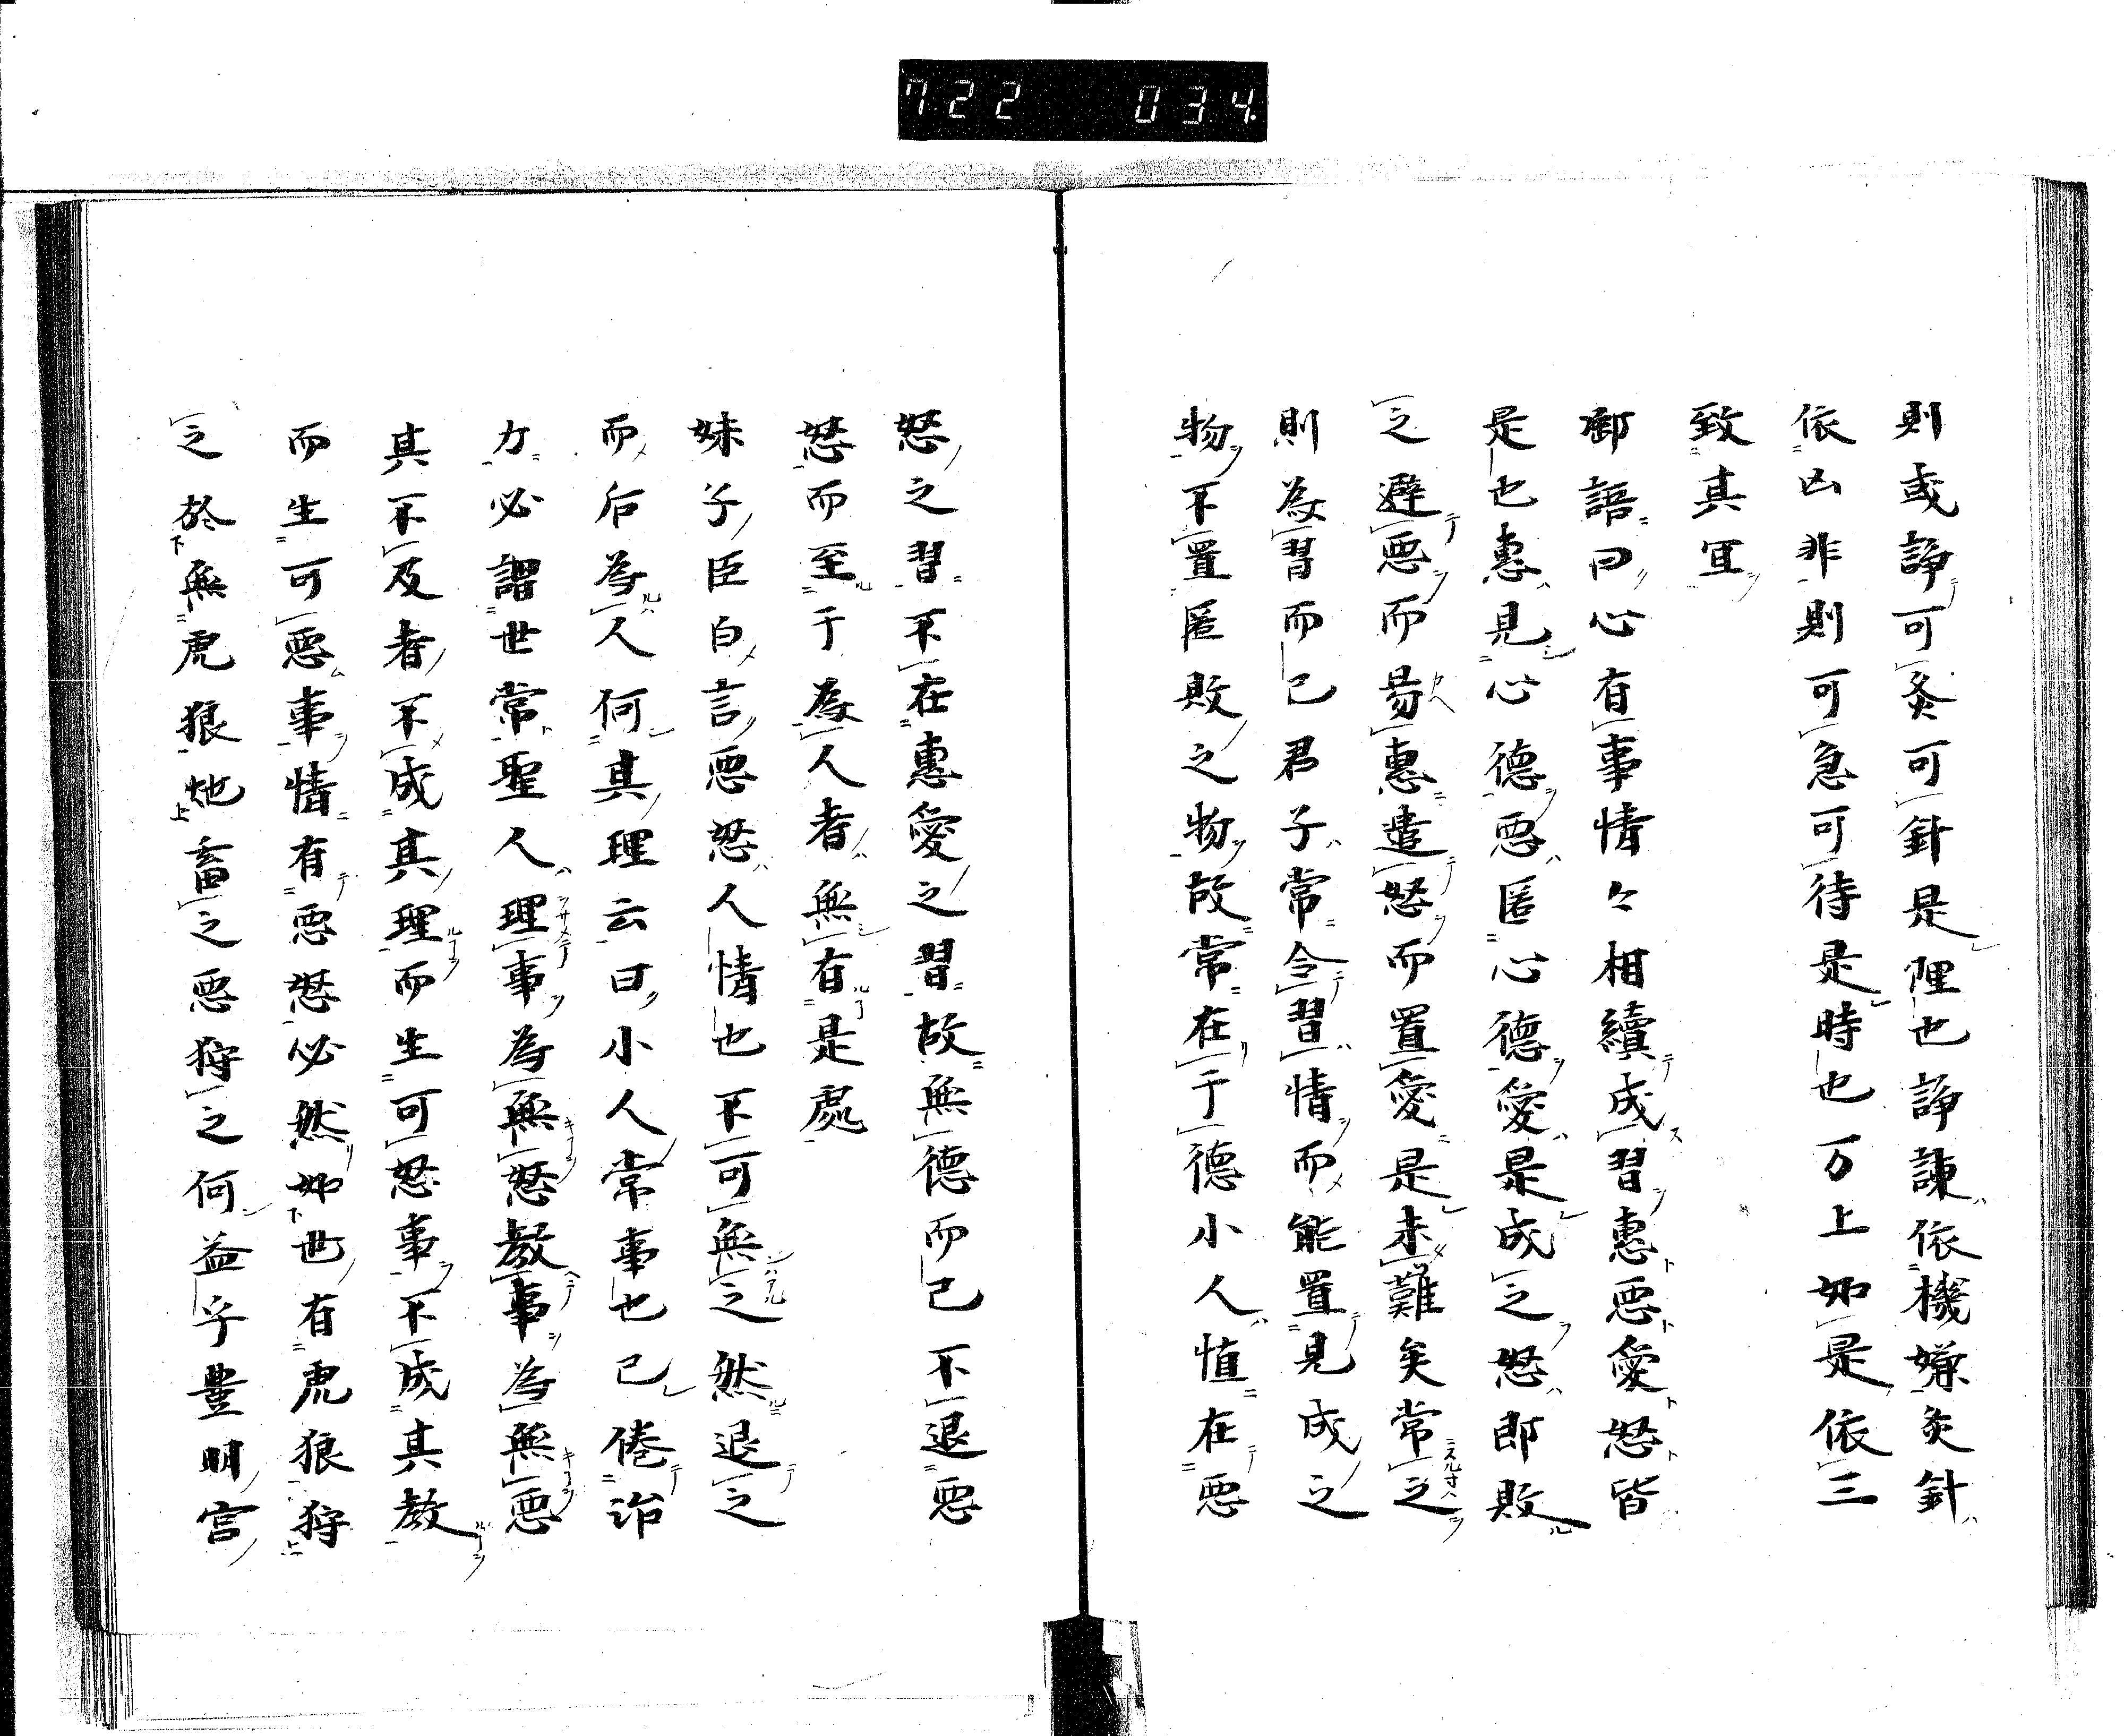 722 034
則或諍可灸可針是理也諍諫依機嫌灸針
依凶非則可急可待是時也万上如是依三
致其冝
御語曰心有事情々相續成習惠悪愛怒皆
是也惠見心德悪匿心德愛是成之怒即敗
之避悪而易惠遣怒而置愛是未難矣常之
則為習而已君子常令習情而能置見成之
物不置匿敗之物故常在于德小人恒在悪
怒之習不在惠愛之習故無德而已不退悪
怒而至于為人者無有是處
妹子臣白言悪怒人情也不可無之然退之
而后為人何其理云曰小人常事也已倦治
力必謂世常聖人理事為無怒教事為無悪
其不及者不成其理而生可怒事不成其教
而生可悪事情有悪怒必然如世有虎狼狩
之於無虎狼地畜之悪狩之何益乎豊明宮